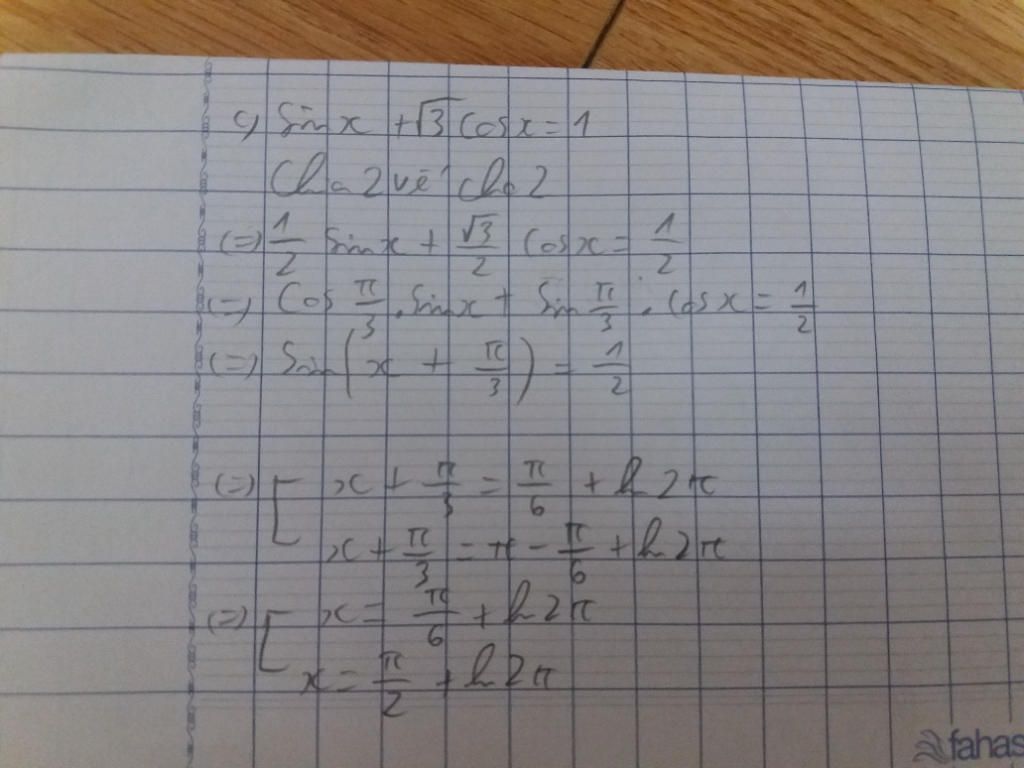 c) Sin x + √3 Cos x = 1
Chia 2 vế cho 2
(=) 1/2 Sin x + √3/2 Cos x = 1/2
(=) Cos π/3 . Sin x + Sin π/3 . Cos x = 1/2
(=) Sin(x + π/3) = 1/2
(=) [ x + π/3 = π/6 + k2π
x + π/3 = π - π/6 + k2π
(=) [ x = π/6 + k2π
x = π/2 + k2π
fahas